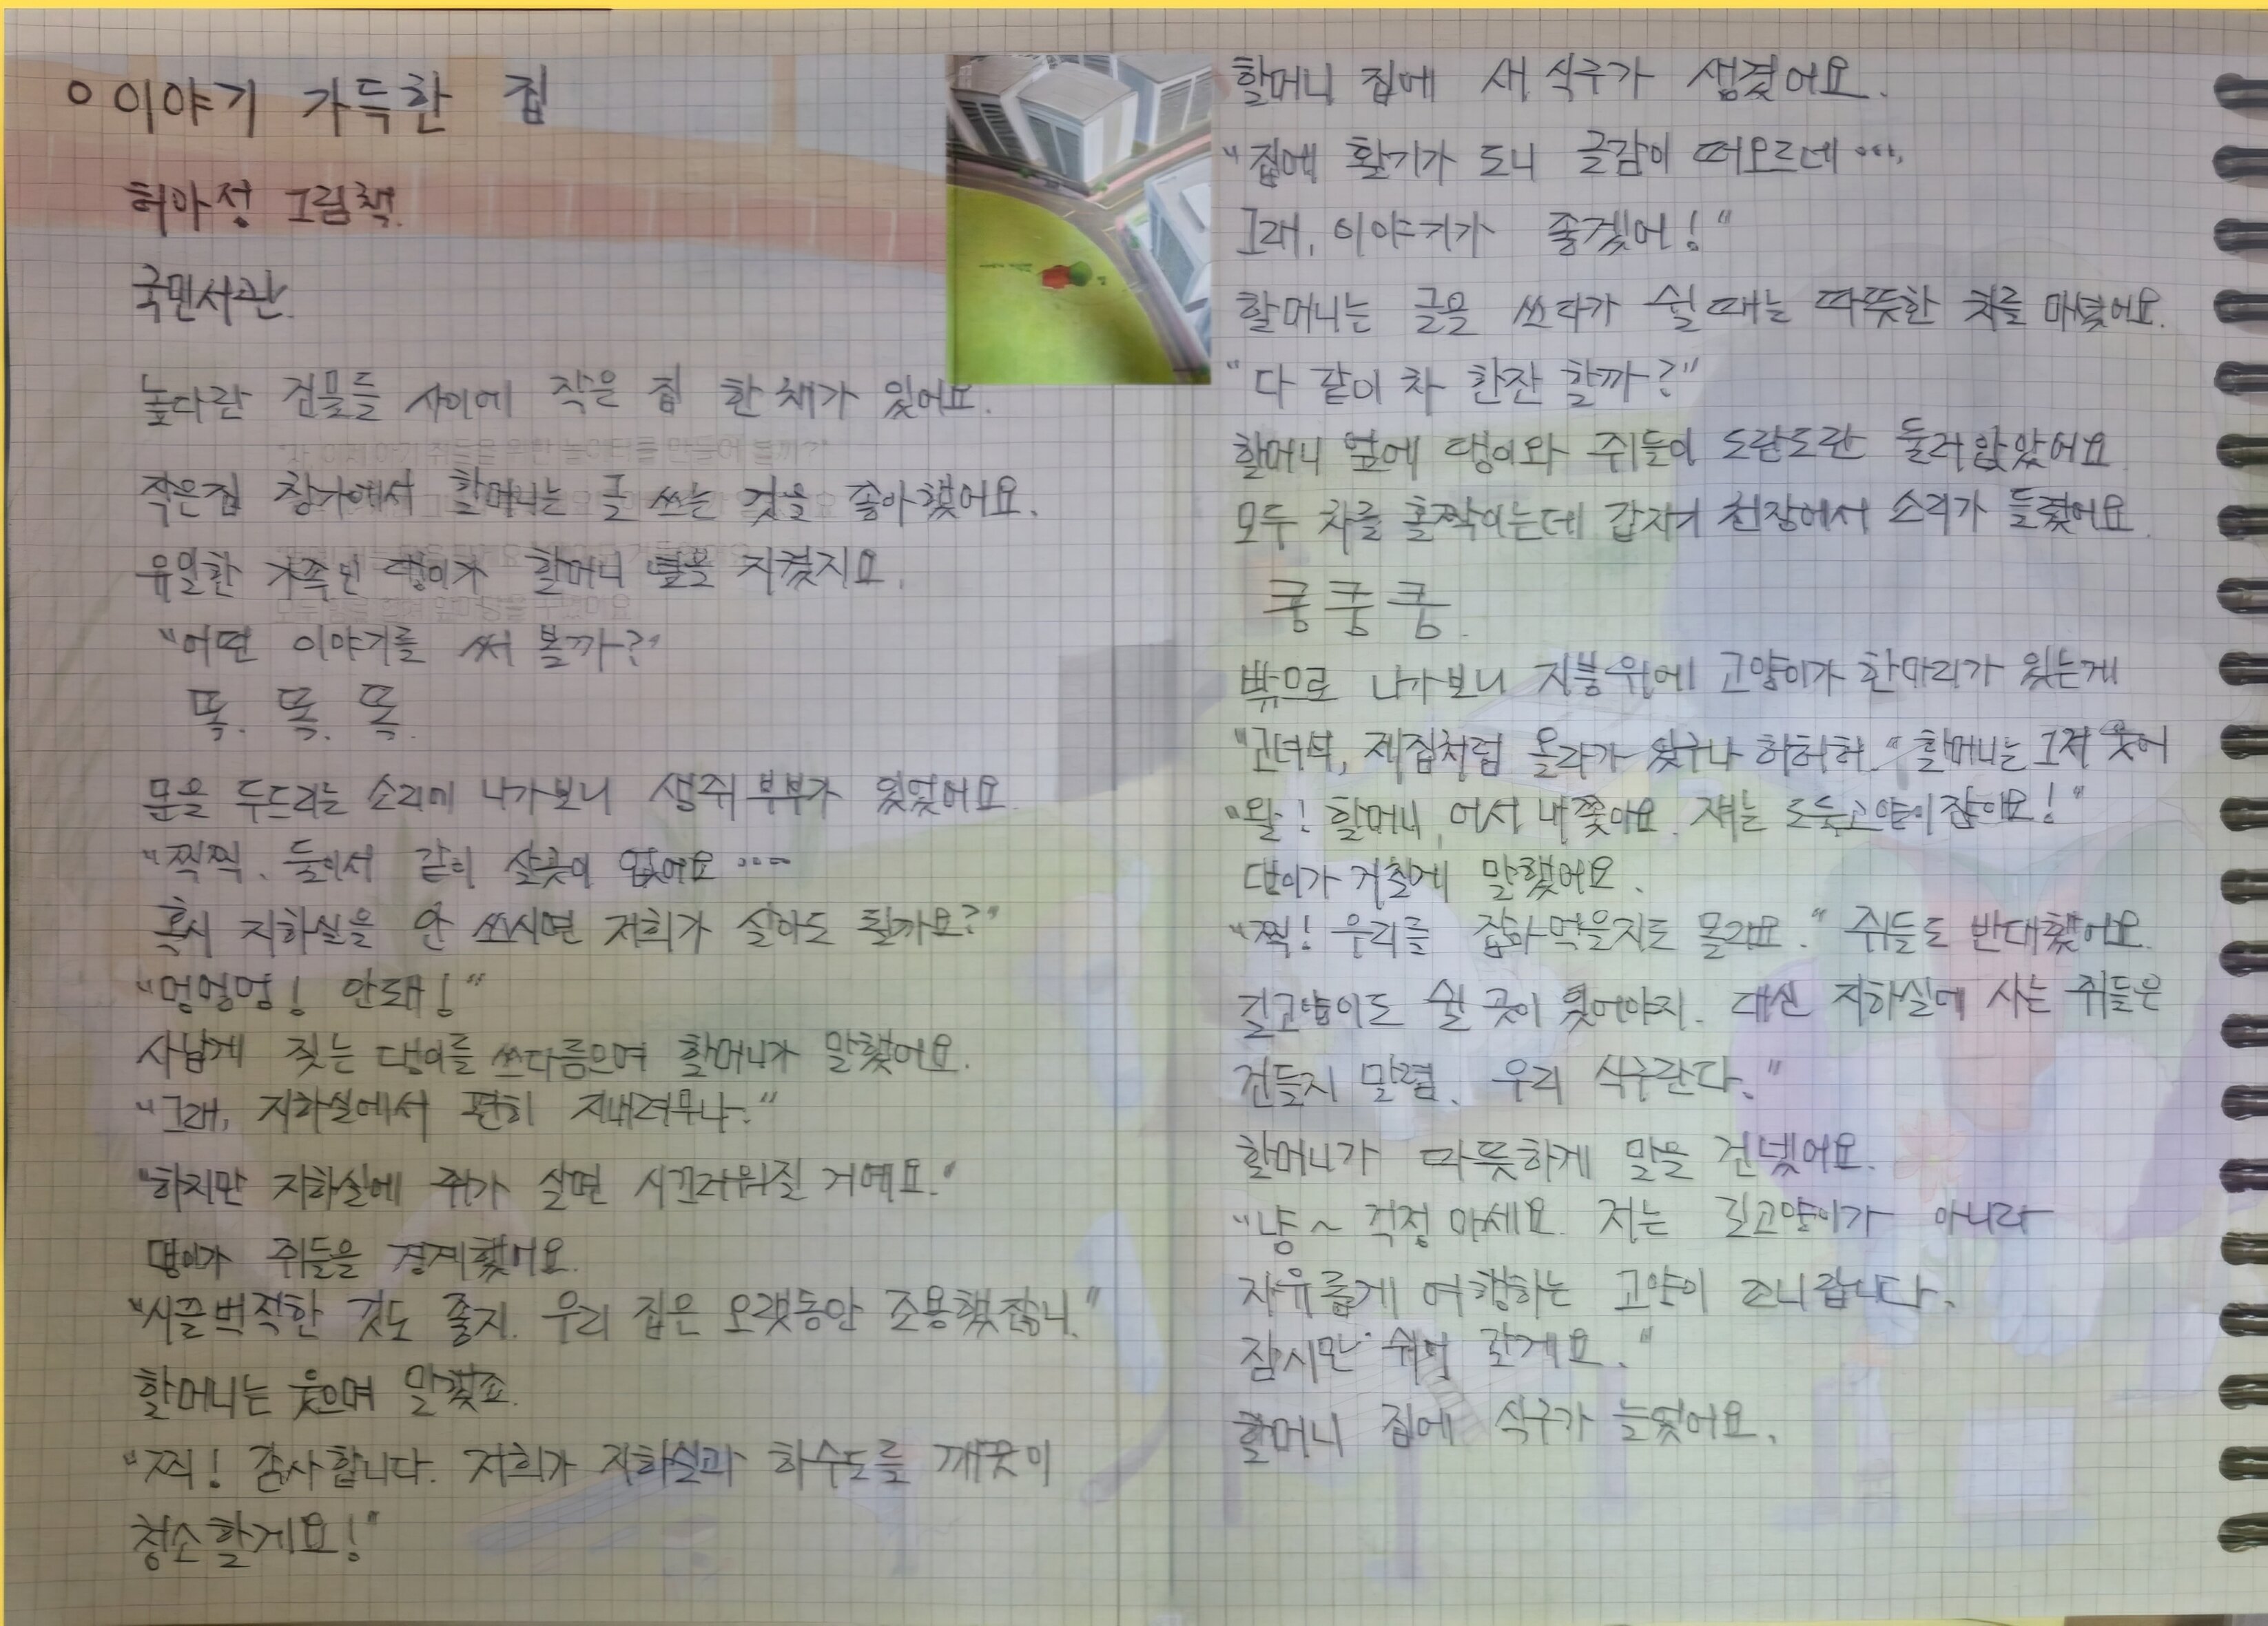 이야기 가득한 집
허아성 그림책.
국민서관.
높다란 건물들 사이에 작은 집 한 채가 있어요.
작은집 창가에서 할머니는 글 쓰는 것을 좋아했어요.
유일한 가족인 댕이가 할머니 곁을 지켰지요.
"어떤 이야기를 써 볼까?"
똑. 똑. 똑.
문을 두드리는 소리에 나가보니 생쥐 부부가 있었어요.
"찍찍. 둘이서 같이 살곳이 없어요....
혹시 지하실을 안 쓰시면 저희가 살아도 될까요?"
"멍멍멍! 안돼!"
사납게 짖는 댕이를 쓰다듬으며 할머니가 말했어요.
"그래, 지하실에서 편히 지내려무나."
"하지만 지하실에 쥐가 살면 시끄러워질 거예요."
댕이가 쥐들을 경계했어요.
"시끌벅적한 것도 좋지. 우리 집은 오랫동안 조용했잖니."
할머니는 웃으며 말했죠.
"찍! 감사합니다. 저희가 지하실과 하수도를 깨끗이
청소할게요!"
할머니 집에 새 식구가 생겼어요.
"집에 활기가 도니 글감이 떠오르네....
그래, 이야기가 좋겠어!"
할머니는 글을 쓰다가 쉴 때는 따뜻한 차를 마셨어요.
"다 같이 차 한잔 할까?"
할머니 옆에 댕이와 쥐들이 도란도란 둘러앉았어요
모두 차를 홀짝이는데 갑자기 천장에서 소리가 들렸어요.
쿵쿵쿵.
밖으로 나가보니 지붕위에 고양이가 한마리가 있는게
"고녀석, 제집처럼 올라가 있구나 허허허." 할머니는 그저 웃어
"왈! 할머니, 어서 내쫓아요. 쟤는 도둑고양이잖아요!"
댕이가 거칠게 말했어요.
"찍! 우리를 잡아먹을지도 몰라요." 쥐들도 반대했어요.
길고양이도 쉴 곳이 있어야지. 대신 지하실에 사는 쥐들은
건들지 말렴. 우리 식구란다."
할머니가 따뜻하게 말을 건넸어요.
"냥~ 걱정 마세요. 저는 길고양이가 아니라
자유롭게 여행하는 고양이 조니랍니다.
잠시만 쉬어 갈게요."
할머니 집에 식구가 늘었어요.